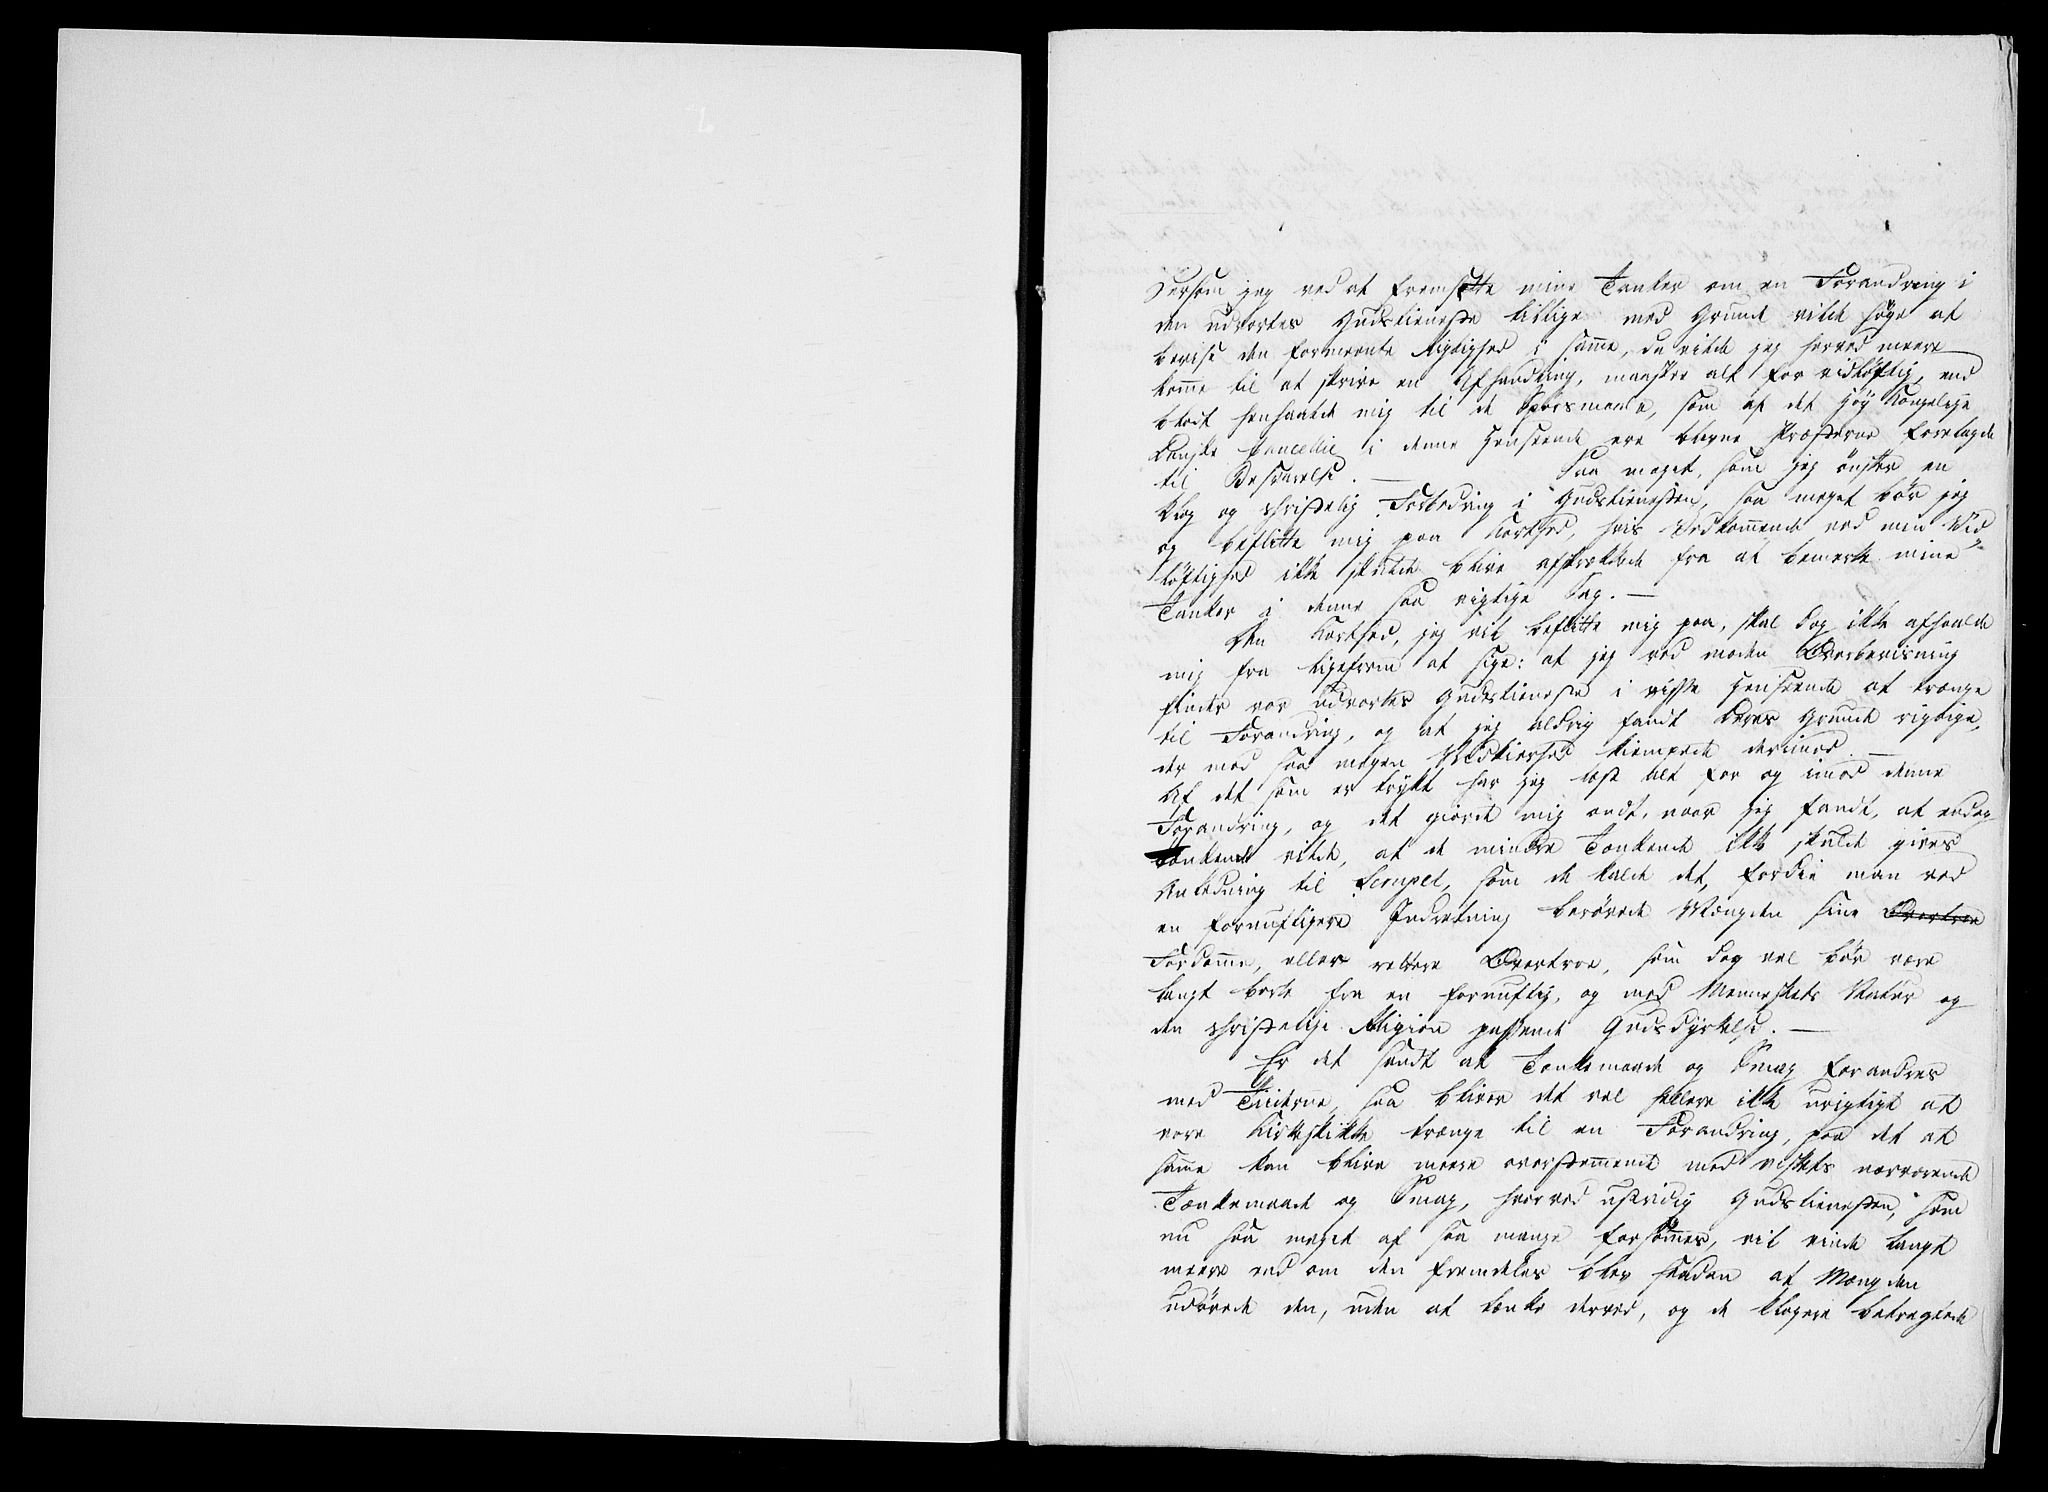 Dersom jeg ved at fremsætte mine Tanker om en Forandring i
den udvortes Gudstieneste tillige med Grunde vilde søge at
bevise den formeente Rigtighed i samme, da vilde jeg herved meere
komme til at skrive en Afhandling, maaskee alt for vidløftig, end
blodt henholde mig til de Spørsmaale, som af det høy Kongelige
Danske Cancellie i denne Henseende ere blevne Præsterne forelagde
til Besvarelse. — Saa meget, som jeg ønsker en
klog og christelig Forbedring i Gudstienesten, saa meget bør jeg
og beflitte mig paa Korthed, hvis Vedkommende ved min Vid
løftighed ikke skulde blive afskrækkede fra at bemerke mine
Tanker i denne saa vigtige Sag. —
Den Korthed, jeg vil beflitte mig paa, skal dog ikke afholde
mig fra ligefrem at sige: at jeg ved moden Overbevisning
finder vor udvortes Gudstieneste i visse Henseende at trænge
til Forandring, og at jeg aldrig fandt deres Grunde rigtige,
der med saa megen Nidkierhed kiempede derimod. —
Af det som er trykt har jeg læst alt for og imod denne
Forandring, og det giorde mig ondt, naar jeg fandt, at endog
Tænkende vilde, at de mindre Tænkende ikke skulde gives
Anledning til Tempel, som de kalde det, fordie man ved
en fornuftigere Indretning berøvede Mængden sine Overtroe
Fordomme, eller rettere Overtroe, som dog vel bør være
langt borte fra en fornuftig, og med Menneskets Natur og
den christelige Religion passende Gudsdyrkelse. —
Er det sandt at Tænkemaade og Smag forandres
med Tiderne, saa bliver det vel hellere ikke urigtigt at
vore Kirkeskikke trænge til en Forandring, paa det at
samme kan blive meere overstemmende med Folkets nærværende
Tænkemaade og Smag, hvorved ustridig Gudstienesten, som
nu saa meget af saa mange forsømmes, vil vinde langt
meere end om den fremdeles blev saadan af Mængden
udøvede den, uden at tænke derved, og de klogere betragtede